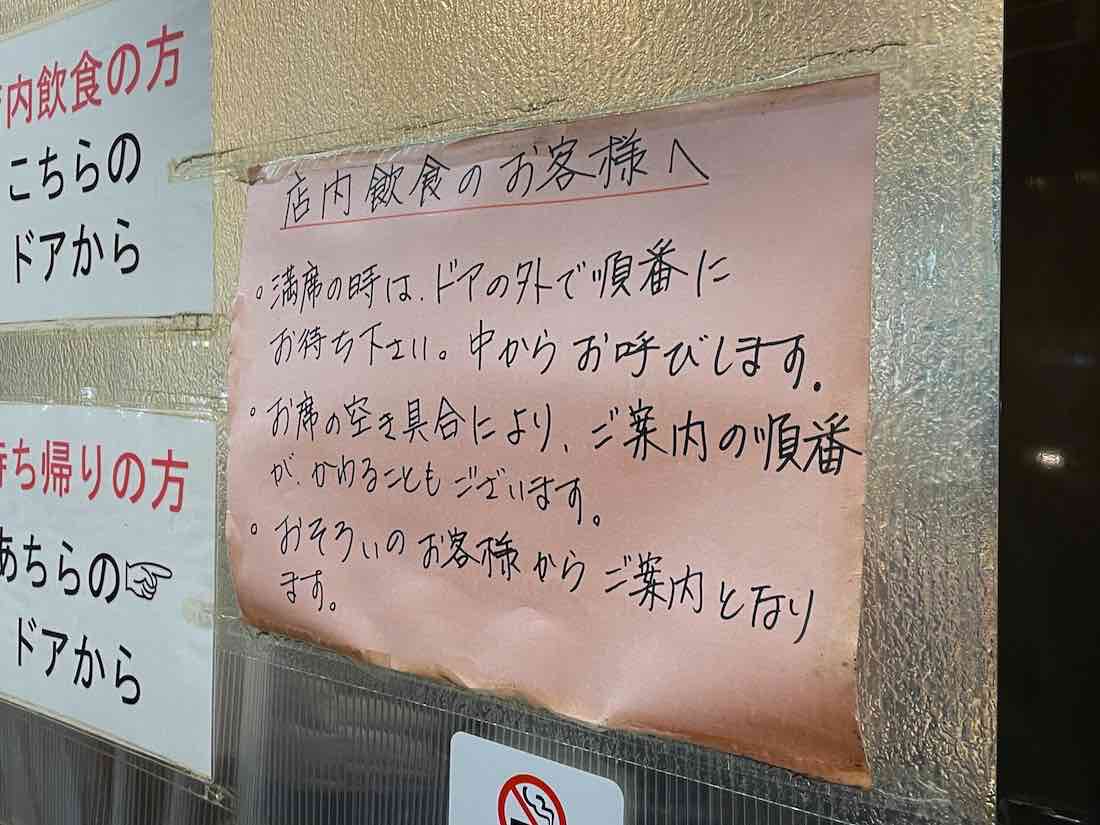 内飲食の方
こちらの
ドアから
ち帰りの方
あちらの
ドアから
店内飲食のお客様へ
。満席の時は、ドアの外で順番に
お待ち下さい。中からお呼びします。
。お席の空き具合により、ご案内の順番
が、かわることもございます。
。おそろいのお客様からご案内となり
ます。